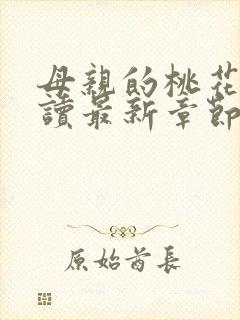 母親的桃花
讀最新章節
原始酋長